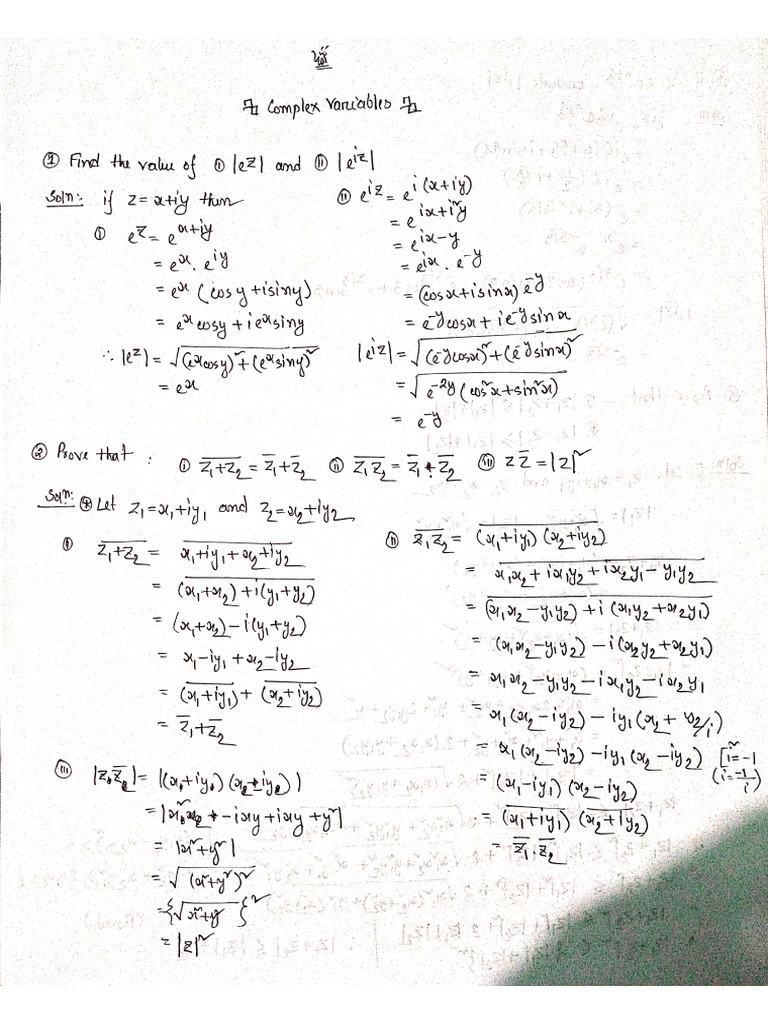 Complex Variables
① Find the value of ① |e^z| and ⑪ |e^{iz}|
Soln: if z = x+iy then
① e^z = e^{x+iy}
= e^x . e^{iy}
= e^x (cosy + isiny)
= e^x cosy + i e^x siny
∴ |e^z| = √((e^x cosy)² + (e^x siny)²)
= e^x
⑪ e^{iz} = e^{i(x+iy)}
= e^{ix+i²y}
= e^{ix-y}
= e^{ix} . e^{-y}
= (cosx + isinx) e^{-y}
= e^{-y}cosx + i e^{-y}sinx
|e^{iz}| = √((e^{-y}cosx)² + (e^{-y}sinx)²)
= √(e^{-2y}(cos²x + sin²x))
= e^{-y}
② Prove that : ① \overline{z₁+z₂} = \overline{z}₁+\overline{z}₂ ⑪ \overline{z₁z₂} = \overline{z}₁.\overline{z}₂ ⑪i z\overline{z} = |z|²
Soln: ⊛ Let z₁ = x₁+iy₁ and z₂ = x₂+iy₂
① \overline{z₁+z₂} = \overline{x₁+iy₁+x₂+iy₂}
= \overline{(x₁+x₂)+i(y₁+y₂)}
= (x₁+x₂)-i(y₁+y₂)
= x₁-iy₁+x₂-iy₂
= \overline{(x₁+iy₁)} + \overline{(x₂+iy₂)}
= \overline{z}₁+\overline{z}₂
⑪ \overline{z₁z₂} = \overline{(x₁+iy₁)(x₂+iy₂)}
= \overline{x₁x₂+ix₁y₂+ix₂y₁-y₁y₂}
= \overline{(x₁x₂-y₁y₂)+i(x₁y₂+x₂y₁)}
= (x₁x₂-y₁y₂)-i(x₂y₂+x₂y₁)
= x₁x₂-y₁y₂-ix₁y₂-ix₂y₁
= x₁(x₂-iy₂)-iy₁(x₂+y₂/i)
= x₁(x₂-iy₂)-iy₁(x₂-iy₂) [i²=-1
(i=-1/i)
= (x₁-iy₁)(x₂-iy₂)
= \overline{(x₁+iy₁)} \overline{(x₂+iy₂)}
= \overline{z}₁.\overline{z}₂
⑪i |z.\overline{z}| = |(x+iy)(x-iy)|
= |x²-ixy+ixy+y²|
= |x²+y²|
= √((x²+y²)²)
= {√(x²+y²)}²
= |z|²